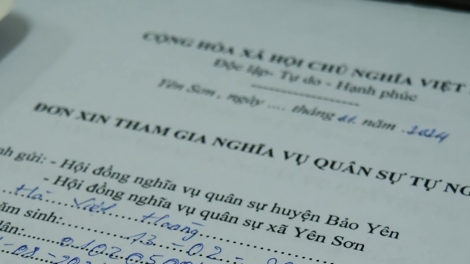 CỘNG HÒA XÃ HỘI CHỦ NGHĨA VIỆT
Độc lập- Tự do - Hạnh phúc
Yên Sơn, ngày .... tháng 01 năm .2024
ĐƠN XIN THAM GIA NGHĨA VỤ QUÂN SỰ TỰ NG
nh gửi: - Hội đồng nghĩa vụ quân sự huyện Bảo Yên
- Hội đồng nghĩa vụ quân sự xã Yên Sơn
Hà Việt Hoàng
ăm sinh: 13 - 02 -